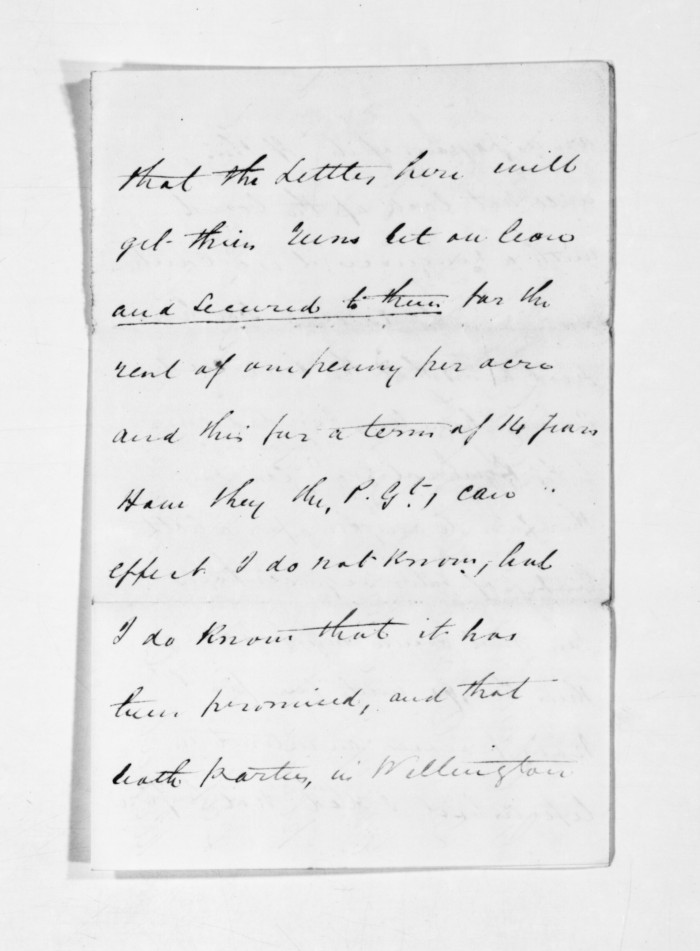 that the Settlers here will
get their Runs let on lease
and secured to them for the
rent of one penny per acre
and this for a term of 14 Years
How they the, P. Gt, can
effect I do not know, but
I do know that it has
been promised, and that
both parties, in Wellington